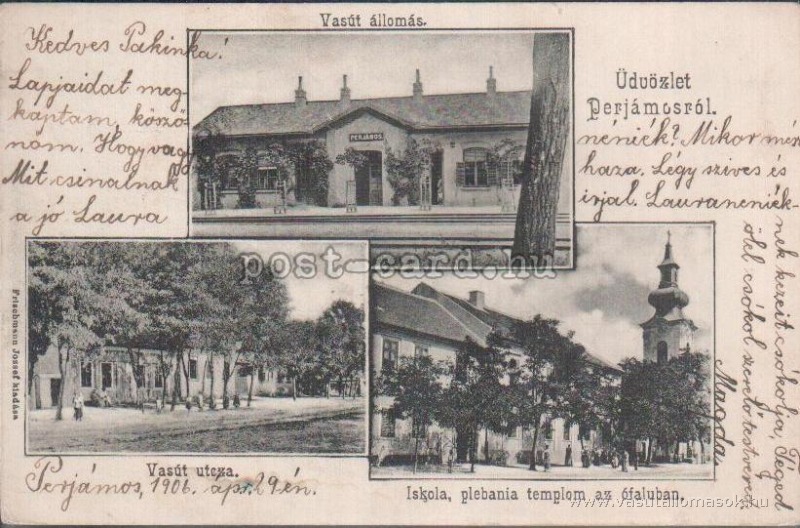 Vasút állomás.
Kedves Pakinka!
Lapjaidat meg-
kaptam, köszö-
nöm. Hogy vagy
Mit csinalnak
a jó Laura
PERJÁMOS.
Üdvözlet
Perjámosról.
néniék? Mikor
haza. Légy szives és
irjal. Lauraneniék-
nek kezeit csókolja, Téged
ölel csókol szerető testvered
Magda
post-card.hu
Frischmann József kiadása
Vasút utcza.
Perjámos, 1906. ápr. 29 én.
Iskola, plebania templom az ófaluban.
www.vasutallomasok.hu